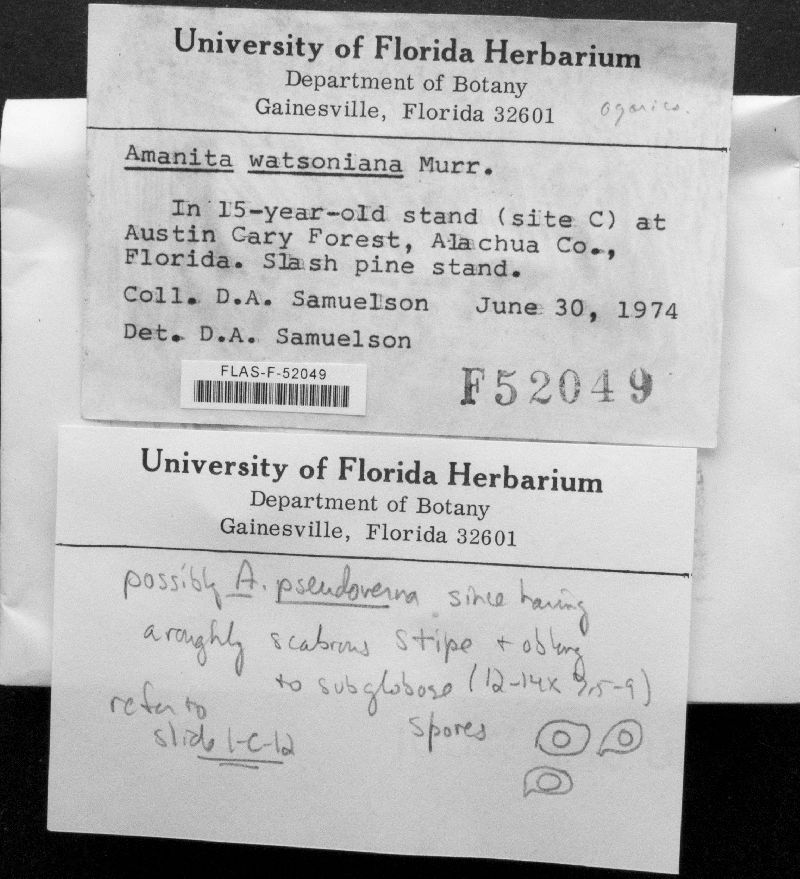 University of Florida Herbarium
Department of Botany
Gainesville, Florida 32601
agarics.
Amanita watsoniana Murr.
In 15-year-old stand (site C) at
Austin Cary Forest, Alachua Co.,
Florida. Slash pine stand.
Coll. D.A. Samuelson June 30, 1974
Det. D.A. Samuelson
FLAS-F-52049
F52049
University of Florida Herbarium
Department of Botany
Gainesville, Florida 32601
possibly A. pseudoverna since having
a roughly scabrous stipe + oblong
to subglobose (12-14x 7.5-9)
refer to
spores
slide 1-C-12